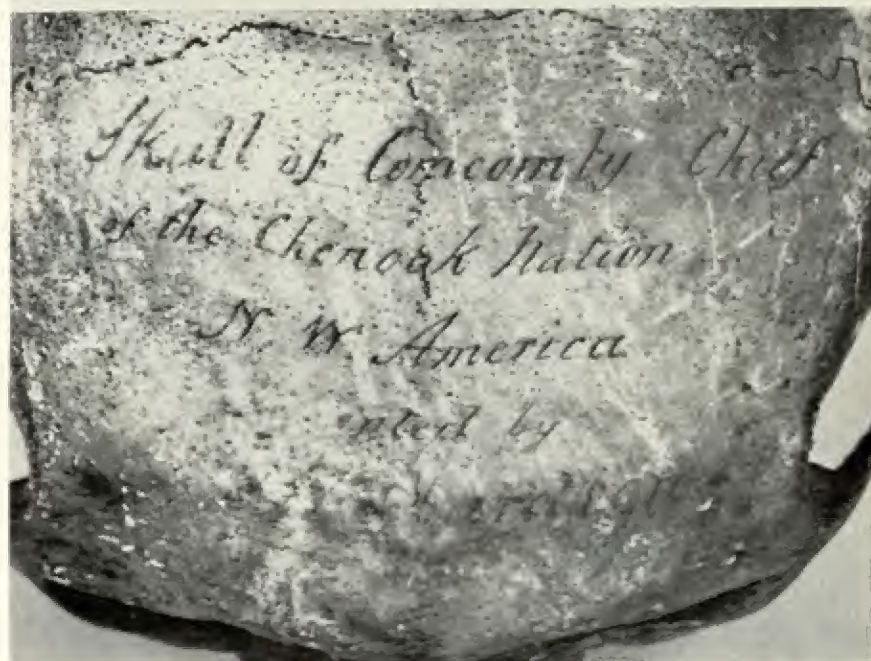 Skull of Comcomly Chief
of the Chenook Nation
N. W. America
nted by